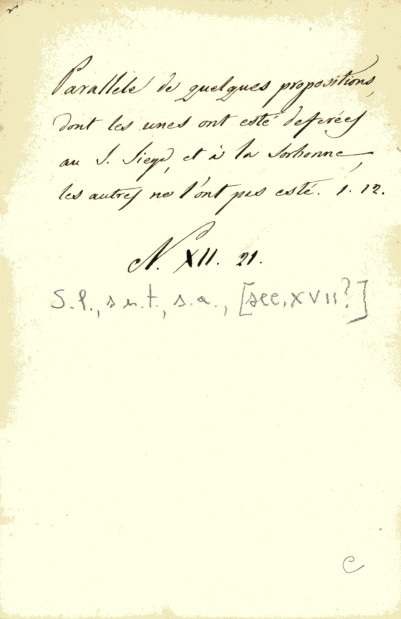 Parallele de quelques propositions,
dont les unes ont esté deferées
au S. Siege, et à la Sorbonne,
les autres ne l'ont pas esté. 1. 12.
N. XII. 21.
S.l., s.n.t., s.a., [sec. XVII?]
C